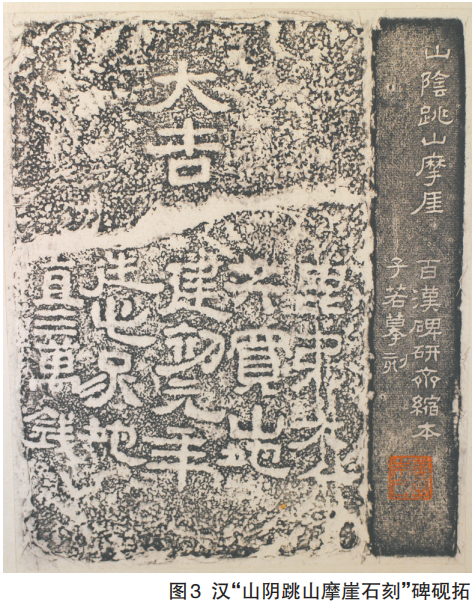 山陰跳山摩厓
百漢碑研齋縮本
子若摹刻
大吉
昆弟六人
共買山地
建初元年
造此冢地
直三萬錢
图3 汉“山阴跳山摩崖石刻”碑砚拓